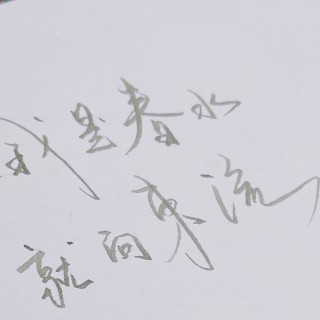 我是春水
就向东流